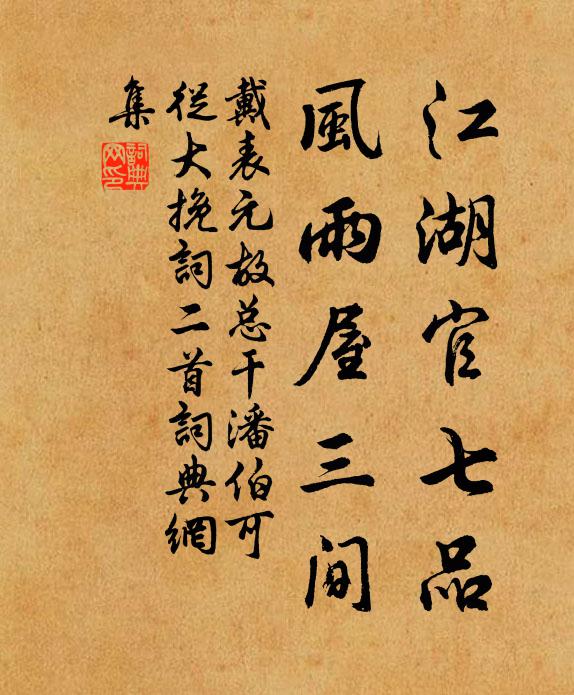 江湖官七品
風雨屋三間
戴表元故总干潘伯可
從大挽詞二首詞典網
集
詞典網印